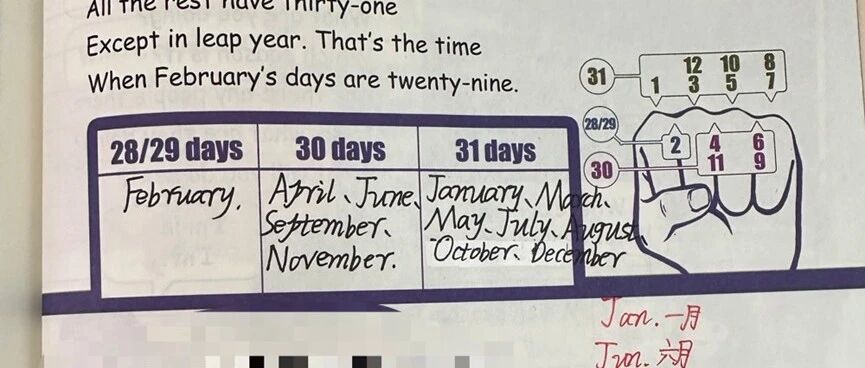 All the rest have thirty-one
Except in leap year. That's the time
When February's days are twenty-nine.
28/29 days
30 days
31 days
February.
April、June、
September、
November.
January、March、
May、July、August、
October、December
31
1
12
3
10
5
8
7
28/29
2
30
4
11
6
9
Jan. 一月
Jun. 六月